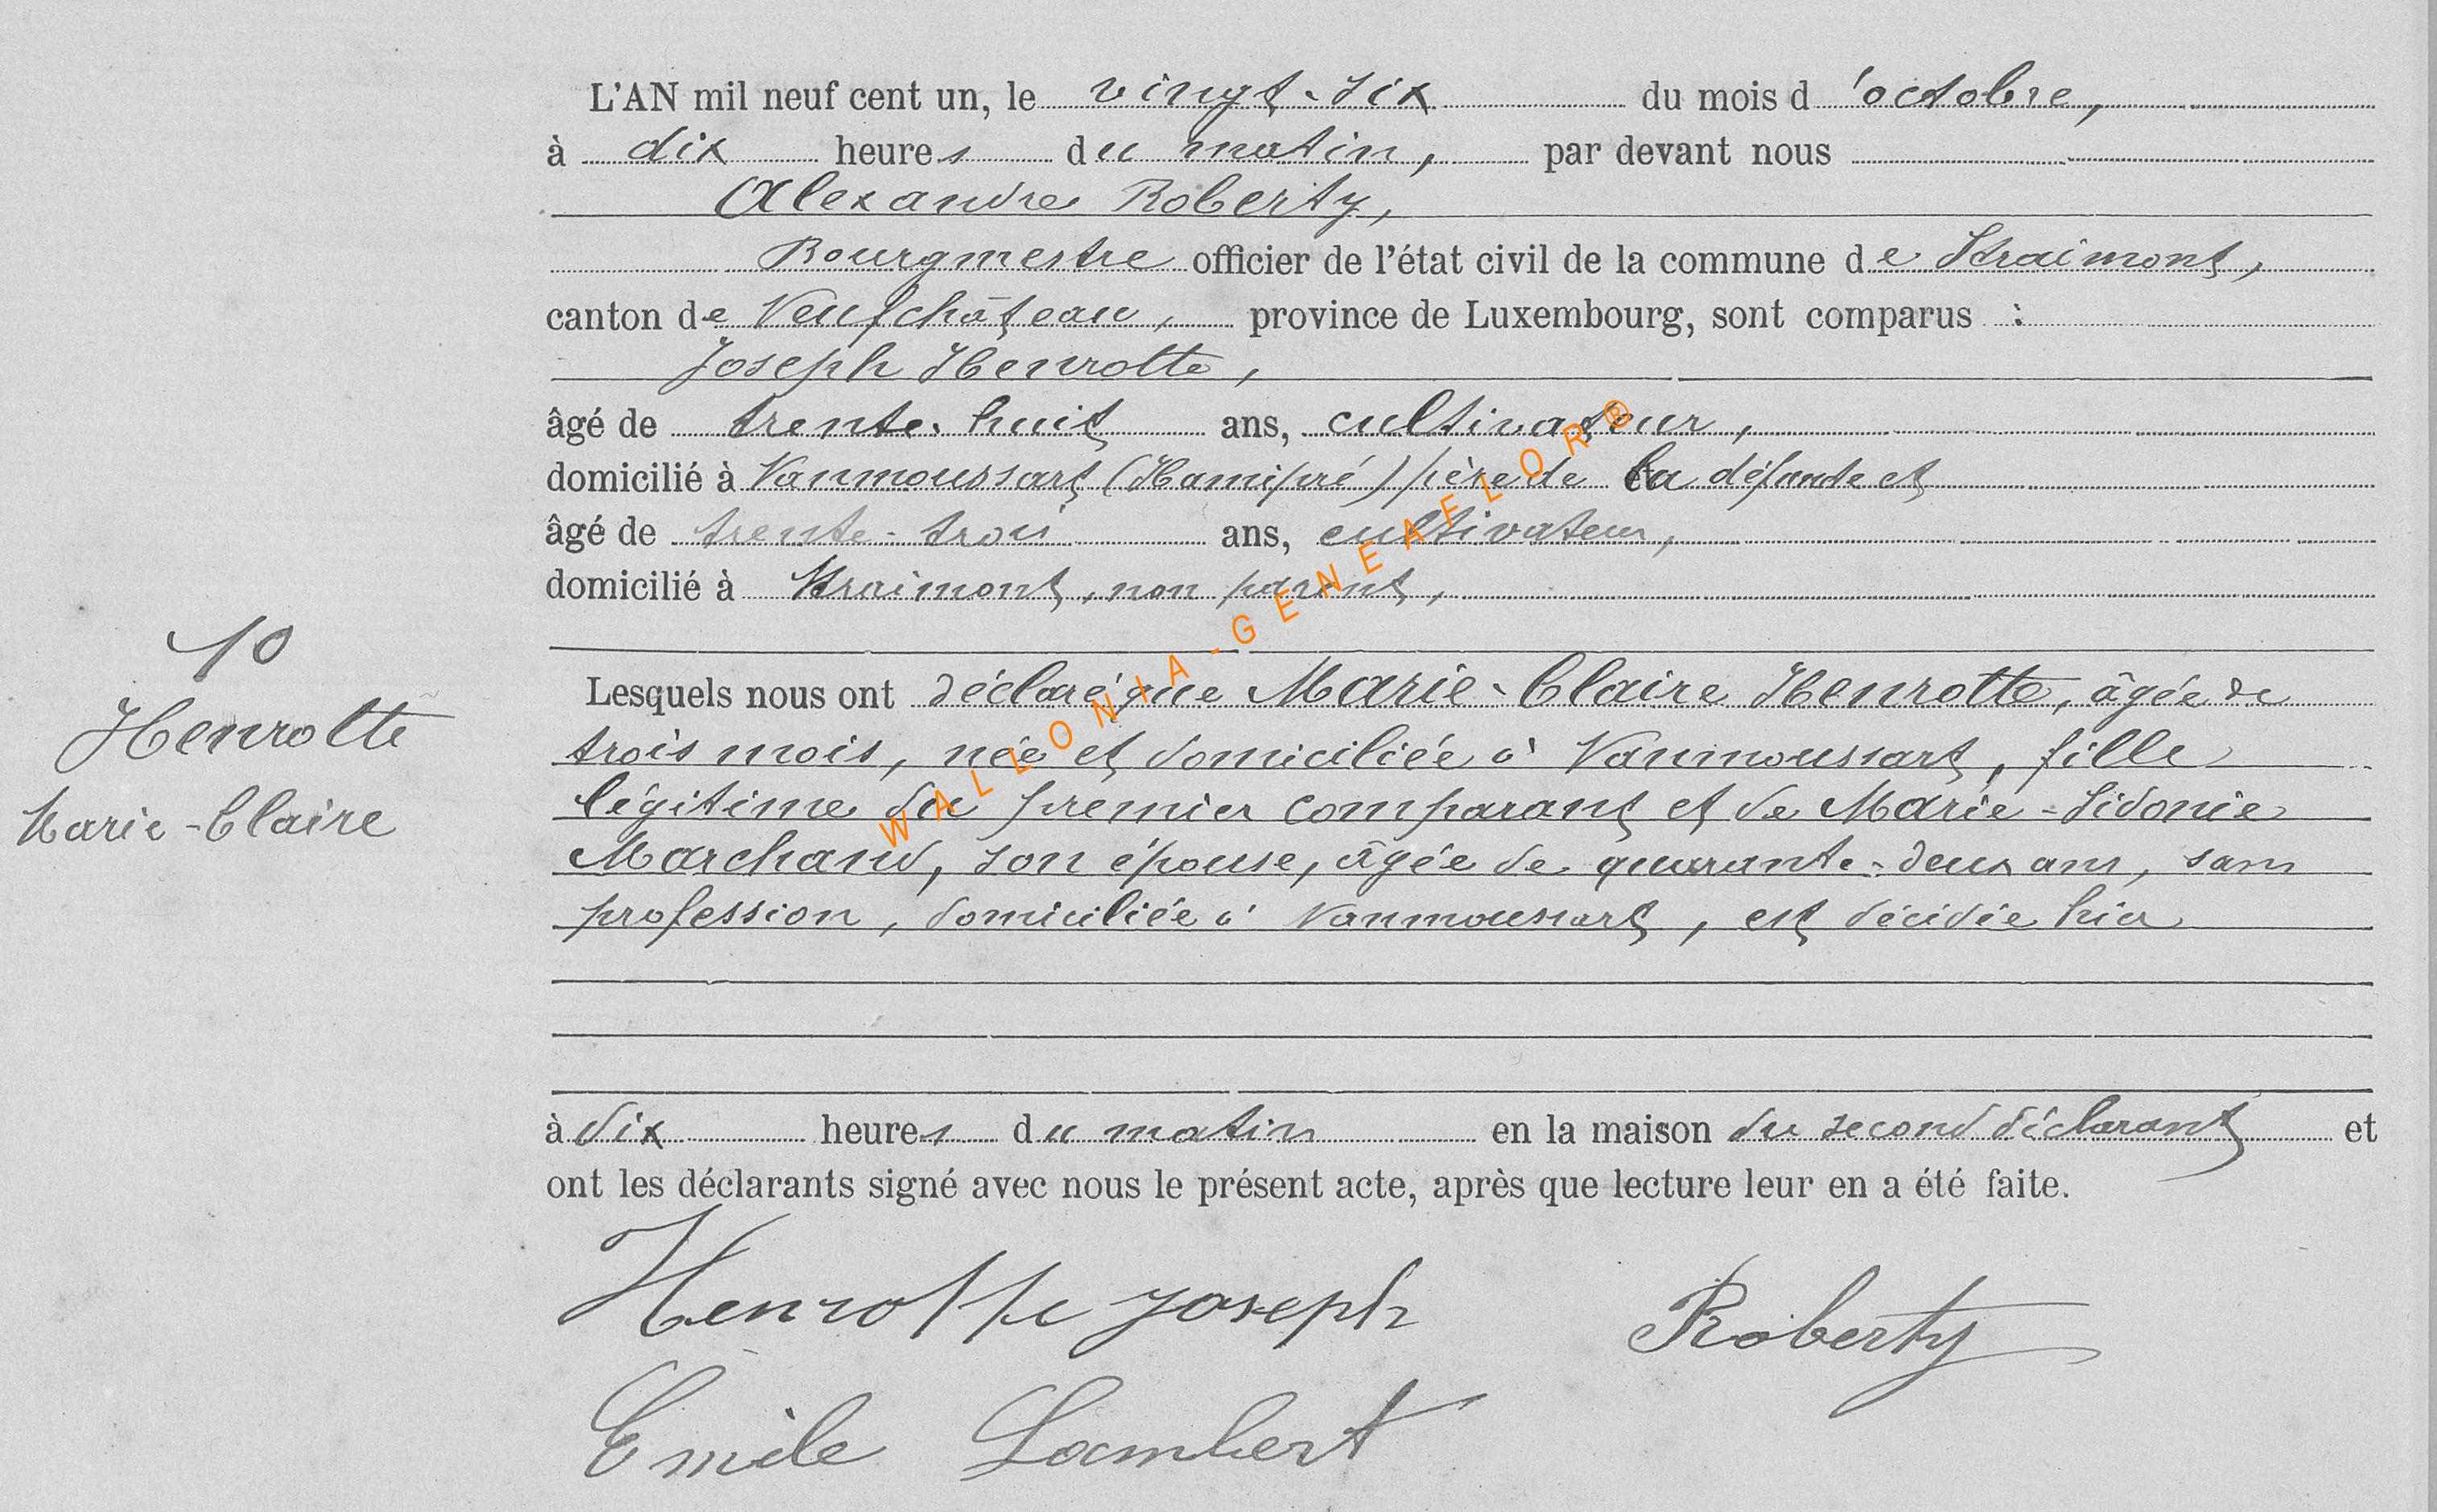 L'AN mil neuf cent un, le vingt-six du mois d'octobre,
à dix heures du matin, par devant nous
Alexandre Roberty,
Bourgmestre officier de l'état civil de la commune de Straimont,
canton de Neufchâteau, province de Luxembourg, sont comparus :
Joseph Henrotte,
âgé de trente-huit ans, cultivateur,
domicilié à Nanmoussart (Hamipré) père de la défunte et
âgé de trente-trois ans, cultivateur,
domicilié à Straimont, non parent,
10
Henrotte
Marie-Claire
Lesquels nous ont déclaré que Marie-Claire Henrotte, âgée de
trois mois, née et domiciliée à Nanmoussart, fille
légitime du premier comparant et de Marie-Sidonie
Marchand, son épouse, âgée de quarante-deux ans, sans
profession, domiciliée à Nanmoussart, est décédée hier
à dix heures du matin en la maison du second déclarant et
ont les déclarants signé avec nous le présent acte, après que lecture leur en a été faite.
Henrotte Joseph
Roberty
Emile Lambert
WALLONIA-GENEAFLOR®